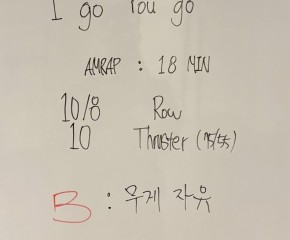 I go You go
AMRAP : 18 MIN
10/8 Row
10 Thruster (75/55)
B : 무게 자유